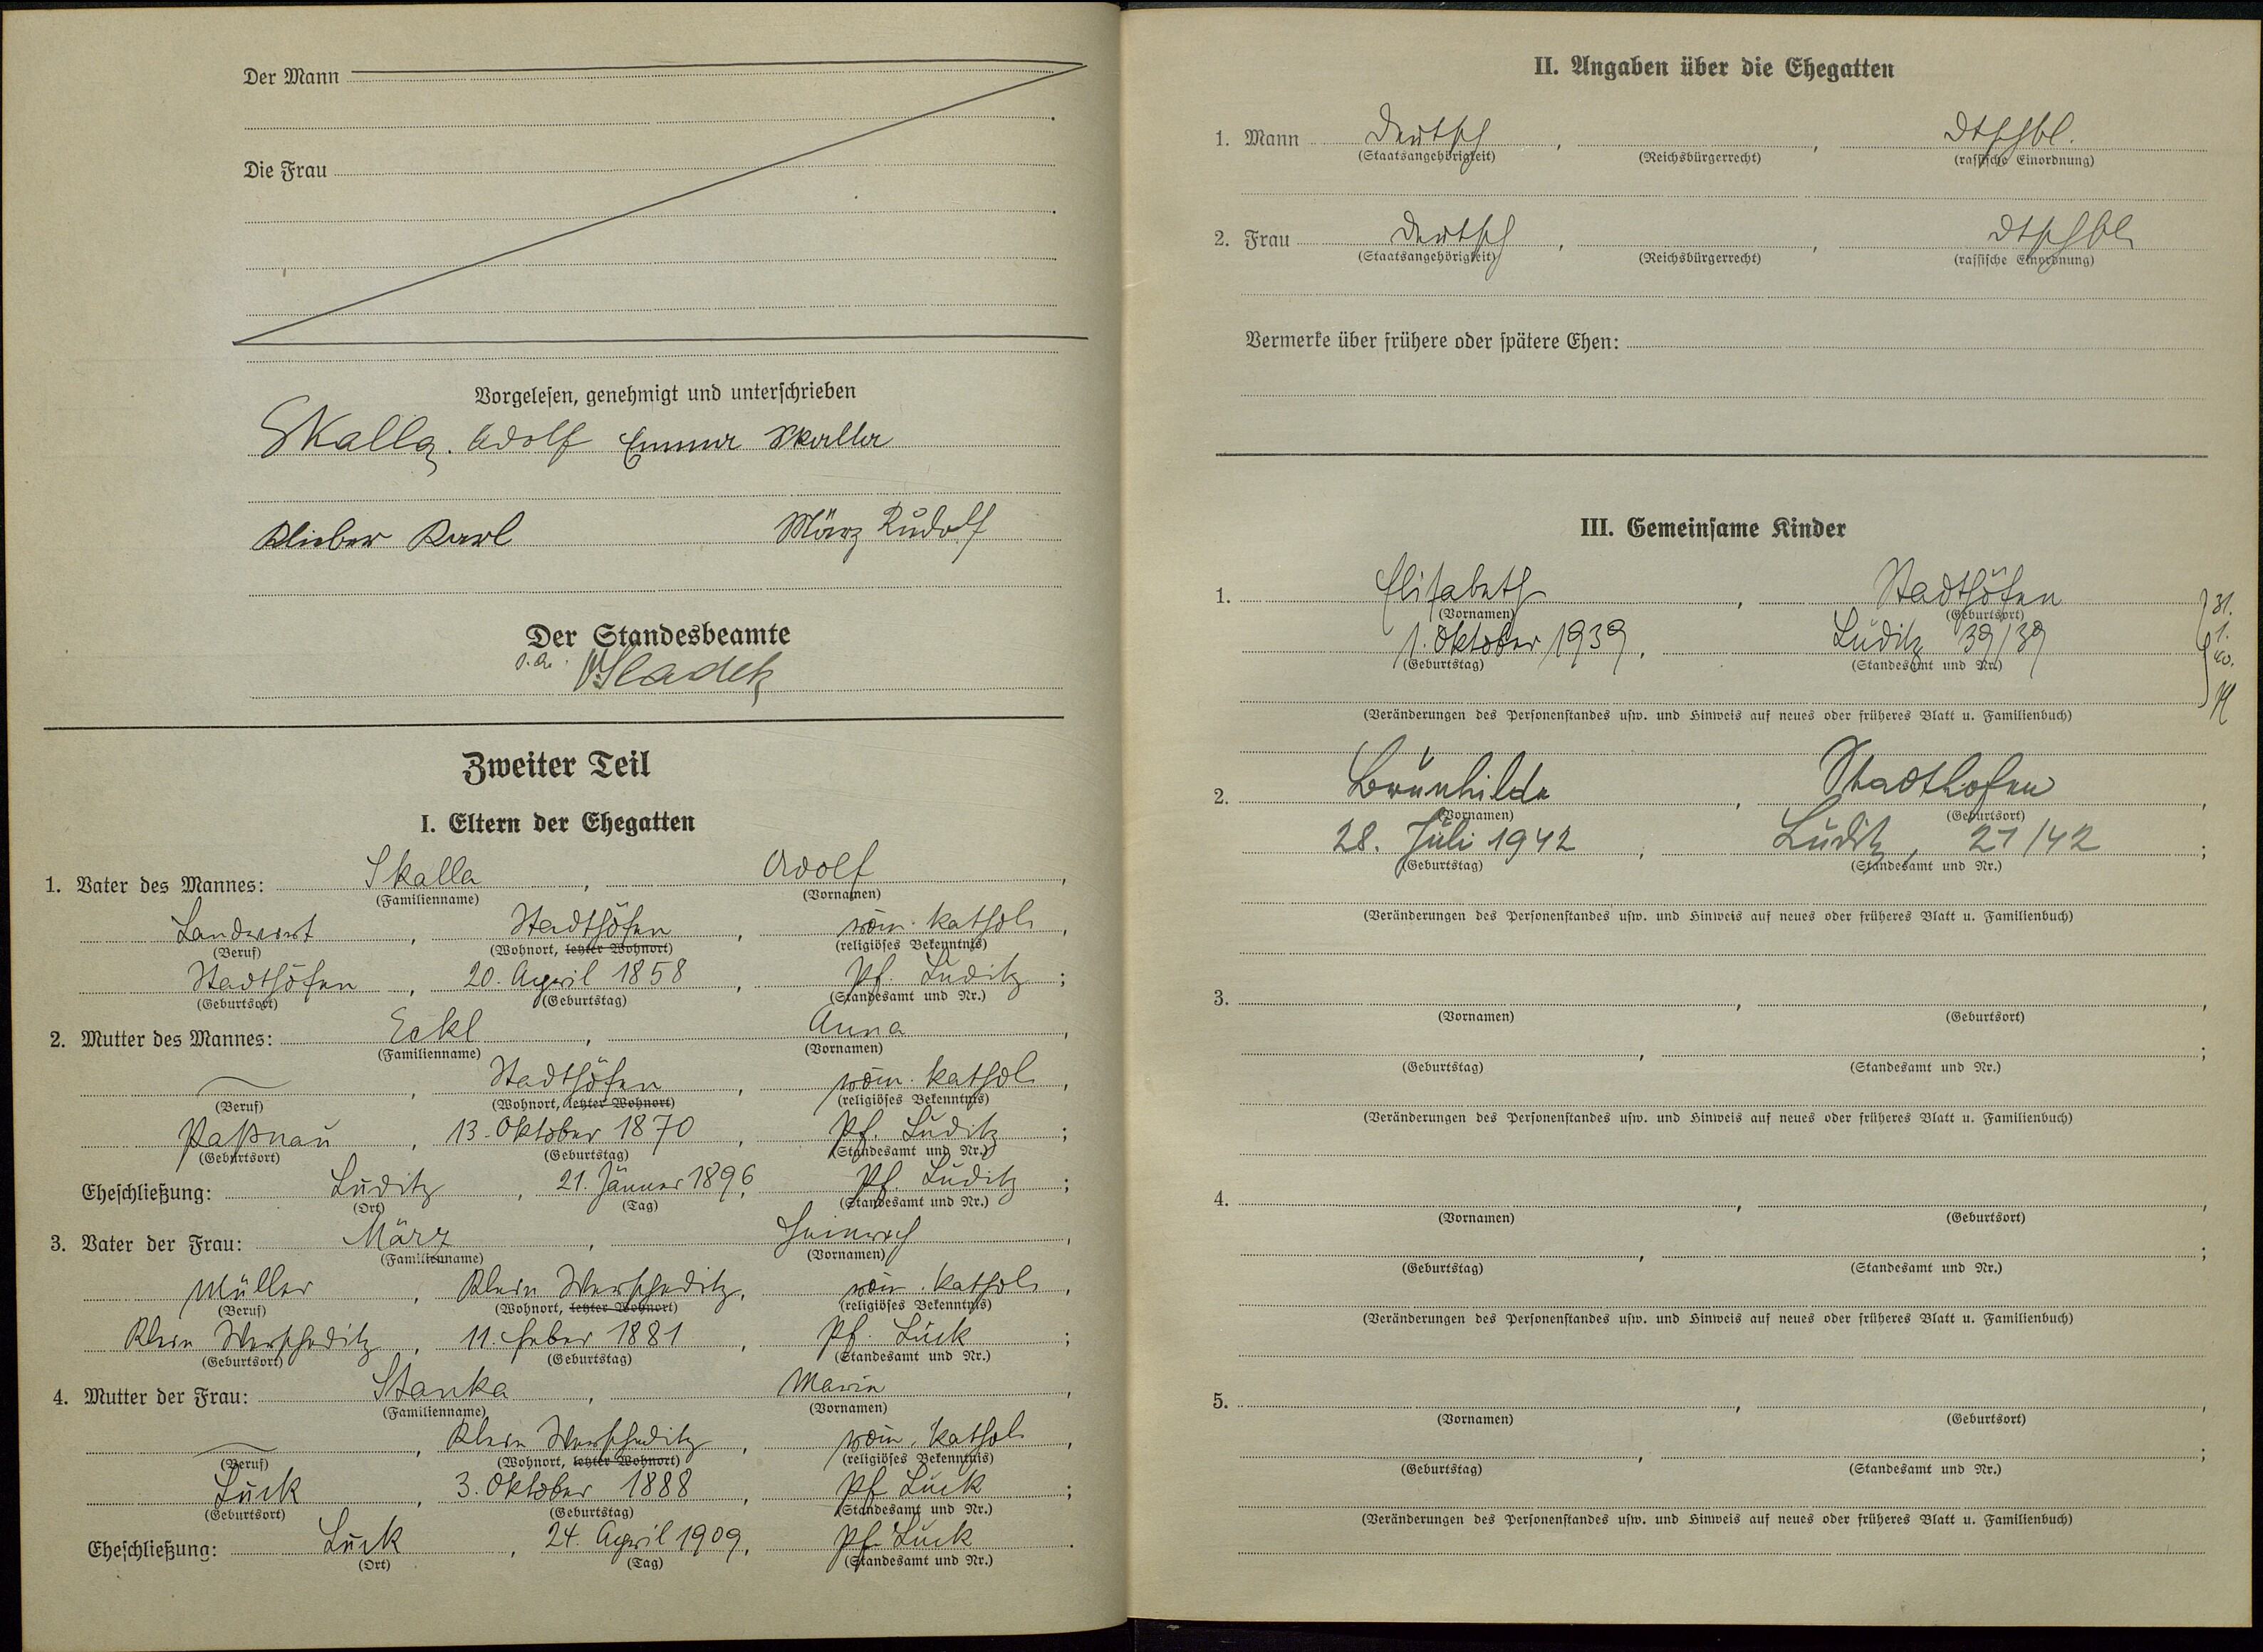 Der Mann
Die Frau
Vorgelesen, genehmigt und unterschrieben
Skalla Adolf Emma Skalla
Klieber Karl März Rudolf
Der Standesbeamte
Sladek
Zweiter Teil
I. Eltern der Ehegatten
1. Vater des Mannes: Skalla, Adolf,
(Familienname) (Vornamen)
Landwirt, Stadthöfen, röm. kathol.,
(Beruf) (Wohnort, letzter Wohnort) (religiöses Bekenntnis)
Stadthöfen, 20. April 1858, Pf. Luditz;
(Geburtsort) (Geburtstag) (Standesamt und Nr.)
2. Mutter des Mannes: Eckl, Anna,
(Familienname) (Vornamen)
, Stadthöfen, röm. kathol.,
(Beruf) (Wohnort, letzter Wohnort) (religiöses Bekenntnis)
Paßnau, 13. Oktober 1870, Pf. Luditz;
(Geburtsort) (Geburtstag) (Standesamt und Nr.)
Eheschließung: Luditz, 21. Jänner 1896, Pf. Luditz;
(Ort) (Tag) (Standesamt und Nr.)
3. Vater der Frau: März, Heinrich,
(Familienname) (Vornamen)
Müller, Klein Werscheditz, röm. kathol.,
(Beruf) (Wohnort, letzter Wohnort) (religiöses Bekenntnis)
Klein Werscheditz, 11. Feber 1881, Pf. Luck;
(Geburtsort) (Geburtstag) (Standesamt und Nr.)
4. Mutter der Frau: Stanka, Maria,
(Familienname) (Vornamen)
, Klein Werscheditz, röm. kathol.,
(Beruf) (Wohnort, letzter Wohnort) (religiöses Bekenntnis)
Luck, 3. Oktober 1888, Pf. Luck;
(Geburtsort) (Geburtstag) (Standesamt und Nr.)
Eheschließung: Luck, 24. April 1909, Pf. Luck.
(Ort) (Tag) (Standesamt und Nr.)
II. Angaben über die Ehegatten
1. Mann Deutsch, , dtschbl.
(Staatsangehörigkeit) (Reichsbürgerrecht) (rassische Einordnung)
2. Frau Deutsch, , dtschbl.
(Staatsangehörigkeit) (Reichsbürgerrecht) (rassische Einordnung)
Vermerke über frühere oder spätere Ehen:
III. Gemeinsame Kinder
1. Elisabeth, Stadthöfen
(Vornamen) (Geburtsort)
1. Oktober 1939, Luditz 39/39
(Geburtstag) (Standesamt und Nr.)
31.
1.
40.
(Veränderungen des Personenstandes usw. und Hinweis auf neues oder früheres Blatt u. Familienbuch)
2. Brünhilde, Stadthofen,
(Vornamen) (Geburtsort)
28. Juli 1942, Luditz, 21/42;
(Geburtstag) (Standesamt und Nr.)
(Veränderungen des Personenstandes usw. und Hinweis auf neues oder früheres Blatt u. Familienbuch)
3. , ,
(Vornamen) (Geburtsort)
, ;
(Geburtstag) (Standesamt und Nr.)
(Veränderungen des Personenstandes usw. und Hinweis auf neues oder früheres Blatt u. Familienbuch)
4. , ,
(Vornamen) (Geburtsort)
, ;
(Geburtstag) (Standesamt und Nr.)
(Veränderungen des Personenstandes usw. und Hinweis auf neues oder früheres Blatt u. Familienbuch)
5. , ,
(Vornamen) (Geburtsort)
, ;
(Geburtstag) (Standesamt und Nr.)
(Veränderungen des Personenstandes usw. und Hinweis auf neues oder früheres Blatt u. Familienbuch)